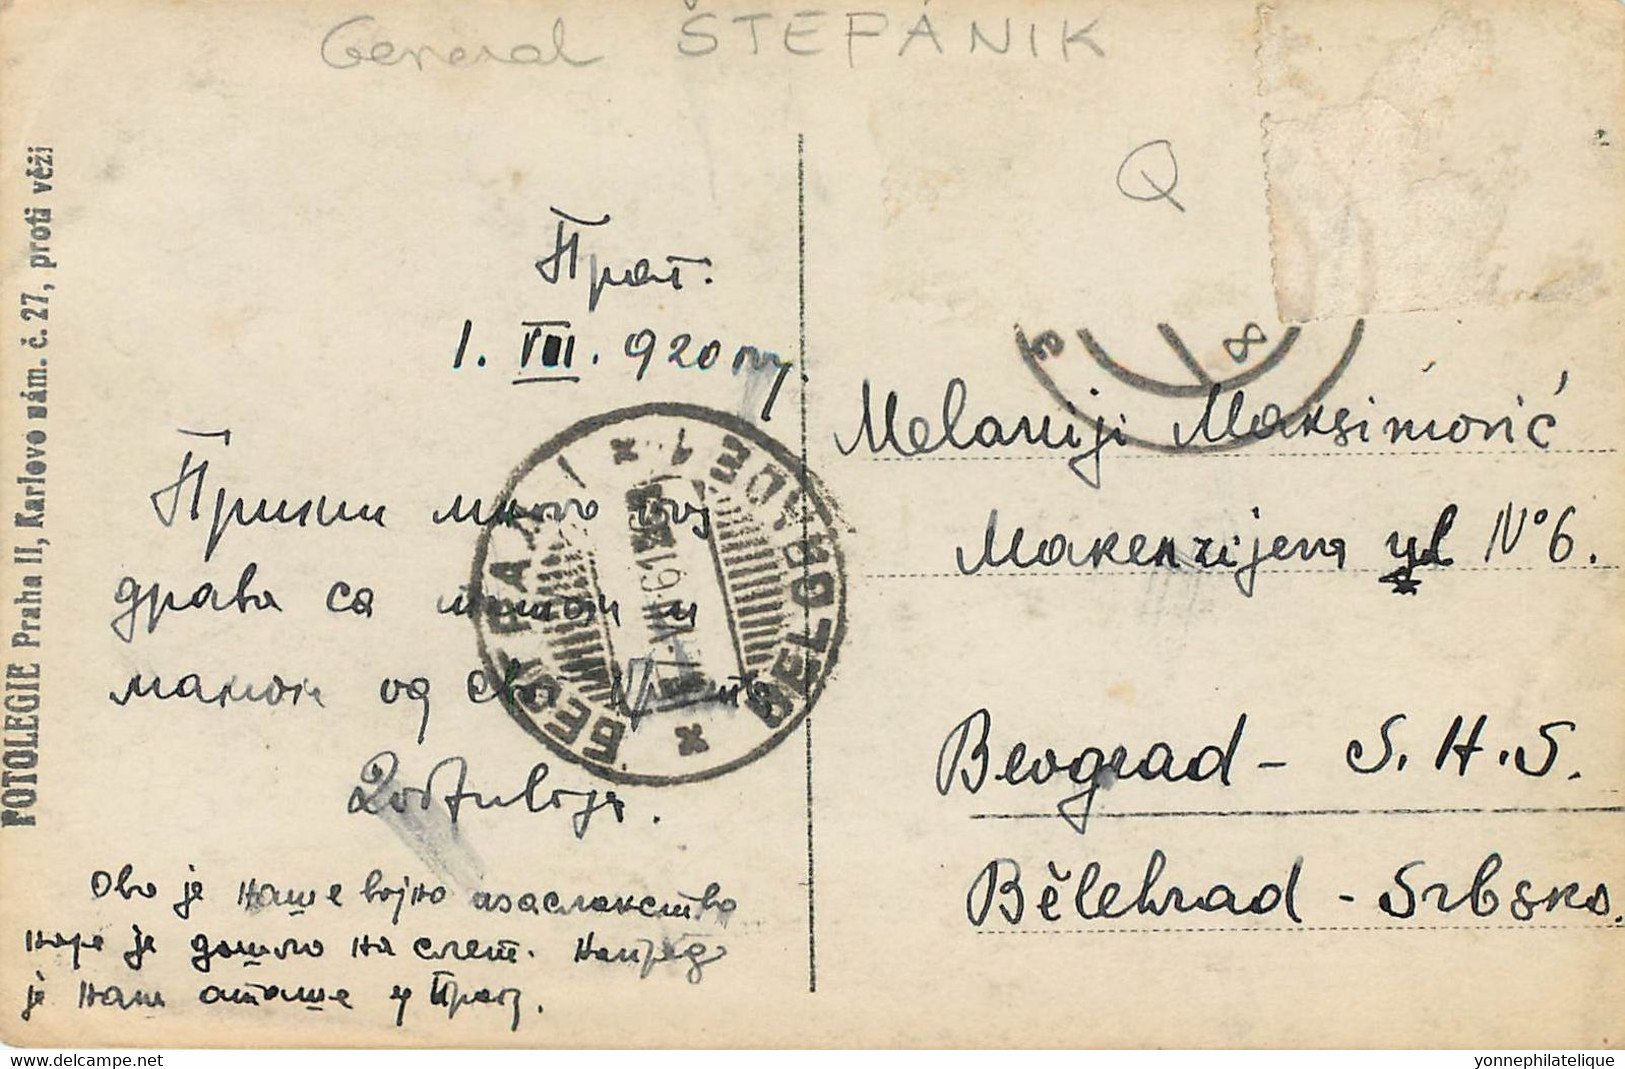 General ŠTEPÁNIK
Q
FOTOLEGIE Praha II, Karlovo nám. č. 27, proti věži
Праг.
1. VII. 920
Прими много
драва са и
од
Ово је наше војно изасланство
које је дошло на слет. Напред
је наш аташе у Прагу.
БЕОГРАД 1
BEOGRADE 1
8
Melaniji Maksimović
Makenzijeva ul No 6.
Beograd - S. H. S.
Bělehrad - Srbsko.
delcampe.net
yonnephilatelique